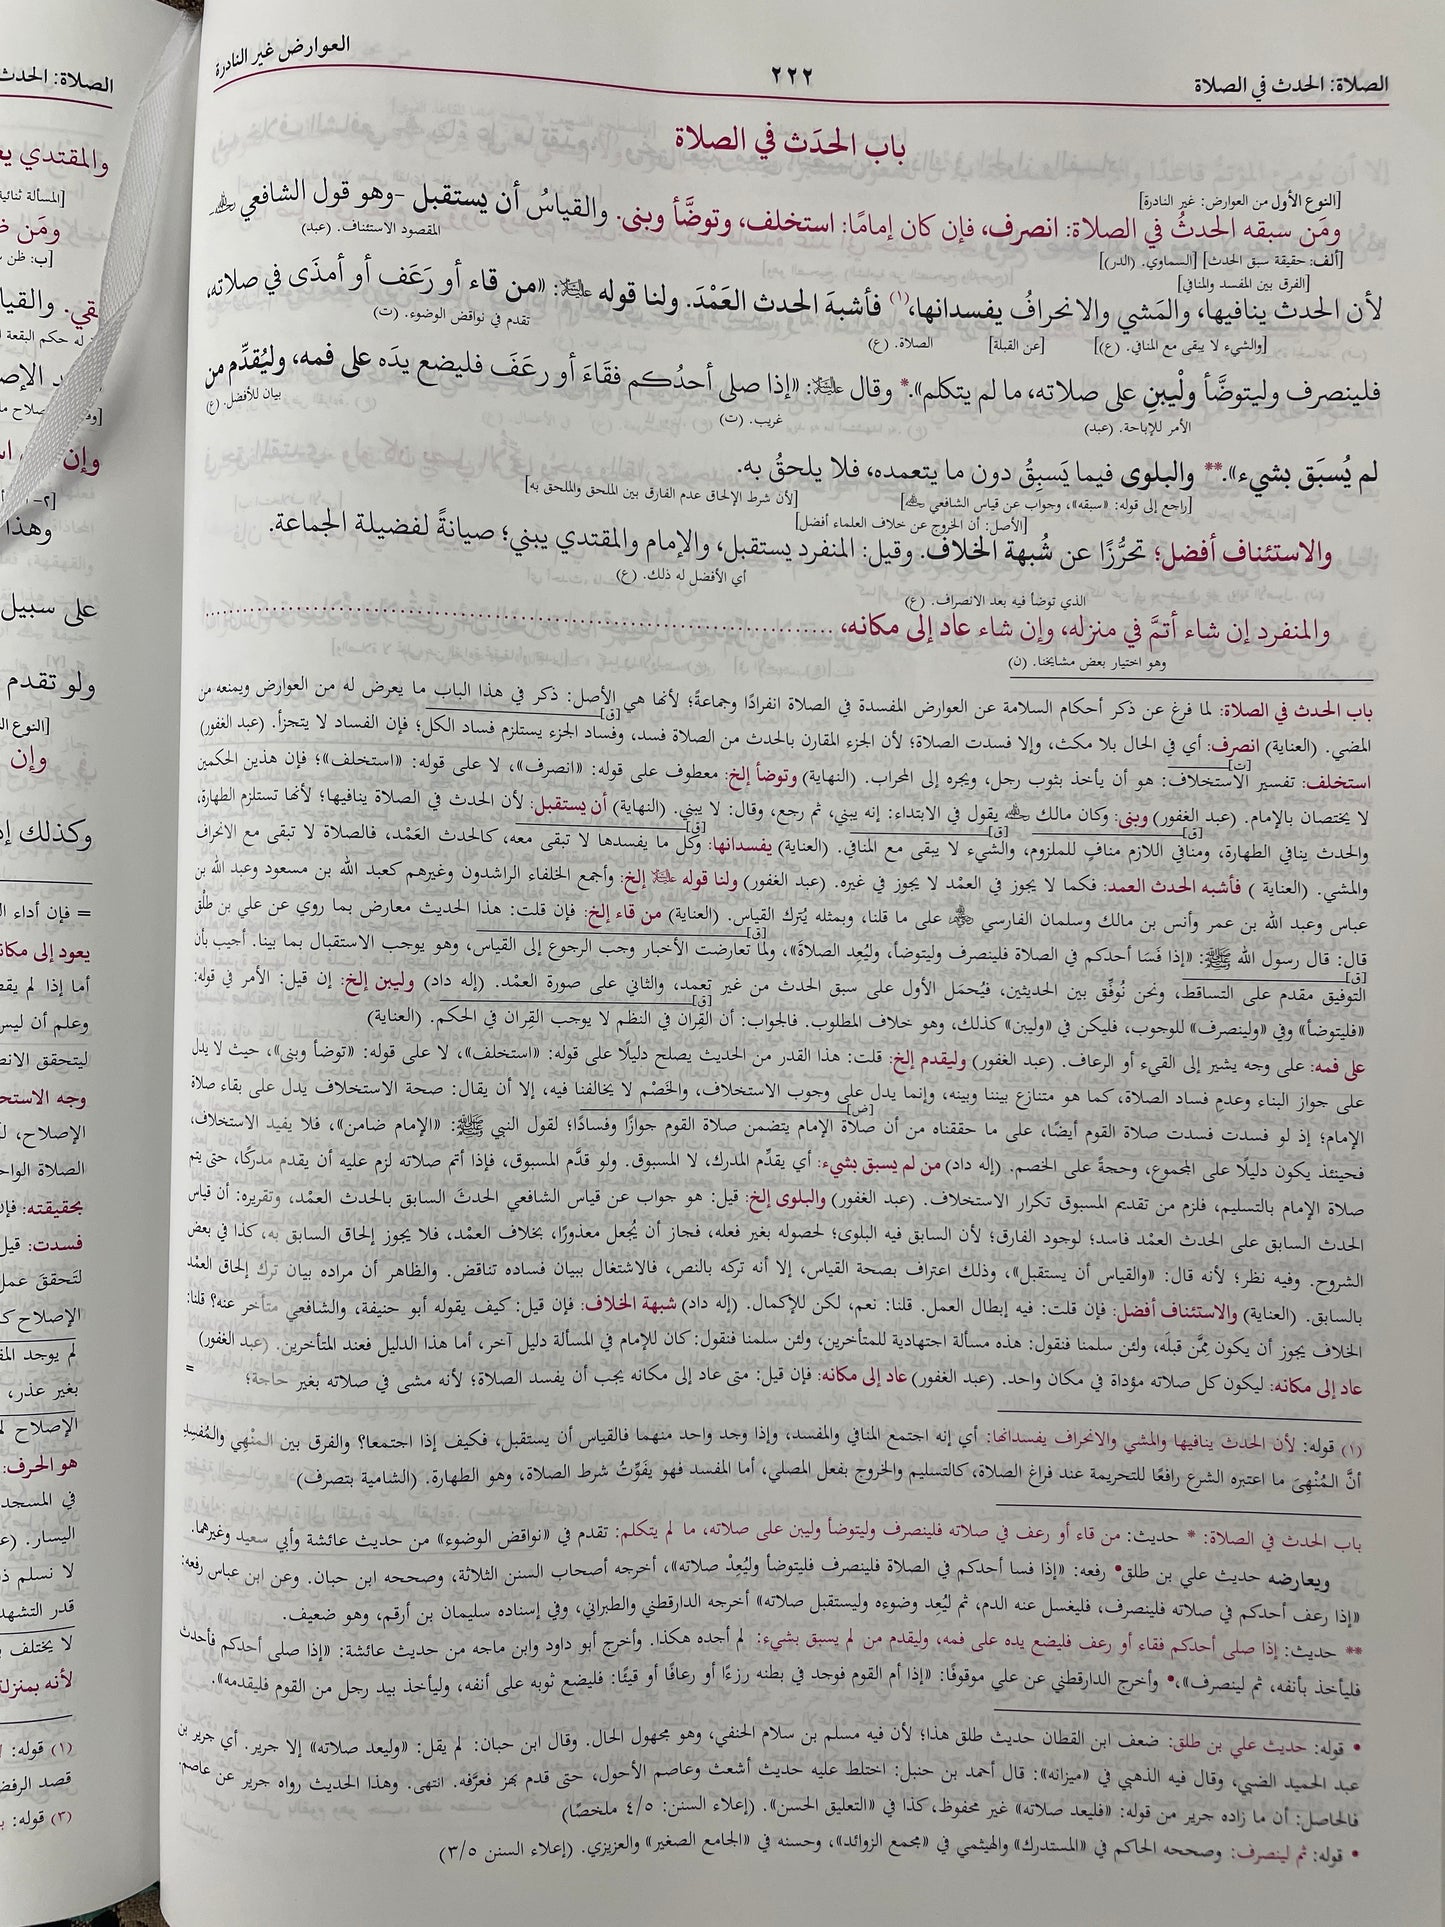 الصلاة: الحدث في الصلاة
٢٢٢
العوارض غير النادرة
باب الحدَث في الصلاة
[النوع الأول من العوارض: غير النادرة]
ومَن سبقه الحدثُ في الصلاة: انصرف، فإن كان إمامًا: استخلف، وتوضَّأ وبنى. والقياسُ أن يستقبل -وهو قول الشافعي رحمه الله-
[ألف: حقيقة سبق الحدث] [السماوي. (الدر)]
المقصود الاستئناف. (عبد)
[الفرق بين المفسد والمنافي]
لأن الحدث ينافيها، والمَشي والانحرافُ يفسدانها،(١) فأشبهَ الحدث العَمْدَ. ولنا قوله عليه السلام: «من قاء أو رَعَف أو أمذَى في صلاته،
[والشيء لا يبقى مع المنافي. (ع)]
[عن القبلة]
الصلاة. (ع)
تقدم في نواقض الوضوء. (ت)
فلينصرف وليتوضَّأ ولْيبنِ على صلاته، ما لم يتكلم».* وقال عليه السلام: «إذا صلى أحدُكم فقَاءَ أو رعَفَ فليضع يدَه على فمه، وليُقدِّم من
الأمر للإباحة. (عبد)
غريب. (ت)
بيان للأفضل. (ع)
لم يُسبَق بشيء».** والبلوى فيما يَسبِقُ دون ما يتعمده، فلا يلحقُ به.
[راجع إلى قوله: «سبقه»، وجواب عن قياس الشافعي رحمه الله]
[لأن شرط الإلحاق عدم الفارق بين الملحق والملحق به]
[الأصل: أن الخروج عن خلاف العلماء أفضل]
والاستئناف أفضل؛ تحرُّزًا عن شُبهة الخلاف. وقيل: المنفرد يستقبل، والإمام والمقتدي يبني؛ صيانةً لفضيلة الجماعة.
أي الأفضل له ذلك. (ع)
الذي توضأ فيه بعد الانصراف. (ع)
والمنفرد إن شاء أتمَّ في منزله، وإن شاء عاد إلى مكانه، ........................
وهو اختيار بعض مشايخنا. (ن)
باب الحدث في الصلاة: لما فرغ عن ذكر أحكام السلامة عن العوارض المفسدة في الصلاة انفرادًا وجماعةً؛ لأنها هي الأصل: ذكر في هذا الباب ما يعرض له من العوارض ويمنعه من
المضي. (العناية) انصرف: أي في الحال بلا مكث، وإلا فسدت الصلاة؛ لأن الجزء المقارن بالحدث من الصلاة فسد، وفساد الجزء يستلزم فساد الكل؛ فإن الفساد لا يتجزأ. (عبد الغفور)
استخلف: تفسير الاستخلاف: هو أن يأخذ بثوب رجل، ويجره إلى المحراب. (النهاية) وتوضأ إلخ: معطوف على قوله: «انصرف»، لا على قوله: «استخلف»؛ فإن هذين الحكمين
لا يختصان بالإمام. (عبد الغفور) وبنى: وكان مالك رحمه الله يقول في الابتداء: إنه يبني، ثم رجع، وقال: لا يبني. (النهاية) أن يستقبل: لأن الحدث في الصلاة ينافيها؛ لأنها تستلزم الطهارة،
والحدث ينافي الطهارة، ومنافي اللازم منافٍ للملزوم، والشيء لا يبقى مع المنافي. (العناية) يفسدانها: وكل ما يفسدها لا تبقى معه، كالحدث العَمْد، فالصلاة لا تبقى مع الانحراف
والمشي. (العناية ) فأشبه الحدث العمد: فكما لا يجوز في العمْد لا يجوز في غيره. (عبد الغفور) ولنا قوله عليه السلام إلخ: وأجمع الخلفاء الراشدون وغيرهم كعبد الله بن مسعود وعبد الله بن
عباس وعبد الله بن عمر وأنس بن مالك وسلمان الفارسي رضي الله عنهم على ما قلنا، وبمثله يُترك القياس. (العناية) من قاء إلخ: فإن قلت: هذا الحديث معارض بما روي عن علي بن طَلْق
قال: قال رسول الله ﷺ: «إذا فَسَا أحدكم في الصلاة فلينصرف وليتوضأ، وليُعِد الصلاةَ»، ولما تعارضت الأخبار وجب الرجوع إلى القياس، وهو يوجب الاستقبال بما بينا. أجيب بأن
التوفيق مقدم على التساقط، ونحن نُوفِّق بين الحديثين، فيُحمَل الأول على سبق الحدث من غير تعمد، والثاني على صورة العمْد. (إله داد) وليبن إلخ: إن قيل: الأمر في قوله:
«فليتوضأ» وفي «ولينصرف» للوجوب، فليكن في «وليبن» كذلك، وهو خلاف المطلوب. فالجواب: أن القِران في النظم لا يوجب القِران في الحكم. (العناية)
على فمه: على وجه يشير إلى القيء أو الرعاف. (عبد الغفور) وليقدم إلخ: قلت: هذا القدر من الحديث يصلح دليلًا على قوله: «استخلف»، لا على قوله: «توضأ وبنى»، حيث لا يدل
على جواز البناء وعدم فساد الصلاة، كما هو متنازع بيننا وبينه، وإنما يدل على وجوب الاستخلاف، والخَصْم لا يخالفنا فيه، إلا أن يقال: صحة الاستخلاف يدل على بقاء صلاة
الإمام؛ إذ لو فسدت فسدت صلاة القوم أيضًا، على ما حققناه من أن صلاة الإمام يتضمن صلاة القوم جوازًا وفسادًا؛ لقول النبي ﷺ: «الإمام ضامن»، فلا يفيد الاستخلاف،
فحينئذ يكون دليلًا على المجموع، وحجةً على الخصم. (إله داد) من لم يسبق بشيء: أي يقدِّم المدرك، لا المسبوق. ولو قدَّم المسبوق، فإذا أتم صلاته لزم عليه أن يقدم مدركًا، حتى يتم
صلاة الإمام بالتسليم، فلزم من تقديم المسبوق تكرار الاستخلاف. (عبد الغفور) والبلوى إلخ: قيل: هو جواب عن قياس الشافعي الحدثَ السابق بالحدث العمْد، وتقريره: أن قياس
الحدث السابق على الحدث العمْد فاسد؛ لوجود الفارق؛ لأن السابق فيه البلوى؛ لحصوله بغير فعله، فجاز أن يُجعل معذورًا، بخلاف العمْد، فلا يجوز إلحاق السابق به، كذا في بعض
الشروح. وفيه نظر؛ لأنه قال: «والقياس أن يستقبل»، وذلك اعتراف بصحة القياس، إلا أنه تركه بالنص، فالاشتغال ببيان فساده تناقض. والظاهر أن مراده بيان ترك إلحاق العمْد
بالسابق. (العناية) والاستئناف أفضل: فإن قلت: فيه إبطال العمل. قلنا: نعم، لكن للإكمال. (إله داد) شبهة الخلاف: فإن قيل: كيف يقوله أبو حنيفة، والشافعي متأخر عنه؟ قلنا:
الخلاف يجوز أن يكون مِمَّن قبلَه، ولئن سلمنا فنقول: هذه مسألة اجتهادية للمتأخرين، ولئن سلمنا فنقول: كان للإمام في المسألة دليل آخر، أما هذا الدليل فعند المتأخرين. (عبد الغفور)
عاد إلى مكانه: ليكون كل صلاته مؤداة في مكان واحد. (عبد الغفور) عاد إلى مكانه: فإن قيل: متى عاد إلى مكانه يجب أن يفسد الصلاة؛ لأنه مشى في صلاته بغير حاجة؛ =
(١) قوله: لأن الحدث ينافيها والمشي والانحراف يفسدانها: أي إنه اجتمع المنافي والمفسد، وإذا وجد واحد منهما فالقياس أن يستقبل، فكيف إذا اجتمعا؟ والفرق بين المنْهِي والمُفسِد
أنَّ المُنْهِيَ ما اعتبره الشرع رافعًا للتحريمة عند فراغ الصلاة، كالتسليم والخروج بفعل المصلي، أما المفسد فهو يفَوِّتُ شرط الصلاة، وهو الطهارة. (الشامية بتصرف)
باب الحدث في الصلاة: * حديث: من قاء أو رعف في صلاته فلينصرف وليتوضأ وليبن على صلاته، ما لم يتكلم: تقدم في «نواقض الوضوء» من حديث عائشة وأبي سعيد وغيرهما.
ويعارضه حديث علي بن طلق• رفعه: «إذا فسا أحدكم في الصلاة فلينصرف فليتوضأ وليُعِدْ صلاته»، أخرجه أصحاب السنن الثلاثة، وصححه ابن حبان. وعن ابن عباس رفعه:
«إذا رعف أحدكم في صلاته فلينصرف، فليغسل عنه الدم، ثم ليُعِد وضوءه وليستقبل صلاته» أخرجه الدارقطني والطبراني، وفي إسناده سليمان بن أرقم، وهو ضعيف.
** حديث: إذا صلى أحدكم فقاء أو رعف فليضع يده على فمه، وليقدم من لم يسبق بشيء: لم أجده هكذا. وأخرج أبو داود وابن ماجه من حديث عائشة: «إذا صلى أحدكم فأحدث
فليأخذ بأنفه، ثم لينصرف»،• وأخرج الدارقطني عن علي موقوفًا: «إذا أم القوم فوجد في بطنه رزءًا أو رعافًا أو قيئًا: فليضع ثوبه على أنفه، وليأخذ بيد رجل من القوم فليقدمه».
• قوله: حديث علي بن طلق: ضعف ابن القطان حديث طلق هذا؛ لأن فيه مسلم بن سلام الحنفي، وهو مجهول الحال. وقال ابن حبان: لم يقل: «وليعد صلاته» إلا جرير. أي جرير بن
عبد الحميد الضبي، وقال فيه الذهبي في «ميزانه»: قال أحمد بن حنبل: اختلط عليه حديث أشعث وعاصم الأحول، حتى قدم بهز فعرَّفه. انتهى. وهذا الحديث رواه جرير عن عاصم،
فالحاصل: أن ما زاده جرير من قوله: «فليعد صلاته» غير محفوظ، كذا في «التعليق الحسن». (إعلاء السنن: ٤/٥ ملخصًا)
• قوله: ثم لينصرف: وصححه الحاكم في «المستدرك» والهيثمي في «مجمع الزوائد»، وحسنه في «الجامع الصغير» والعزيزي. (إعلاء السنن ٣/٥)